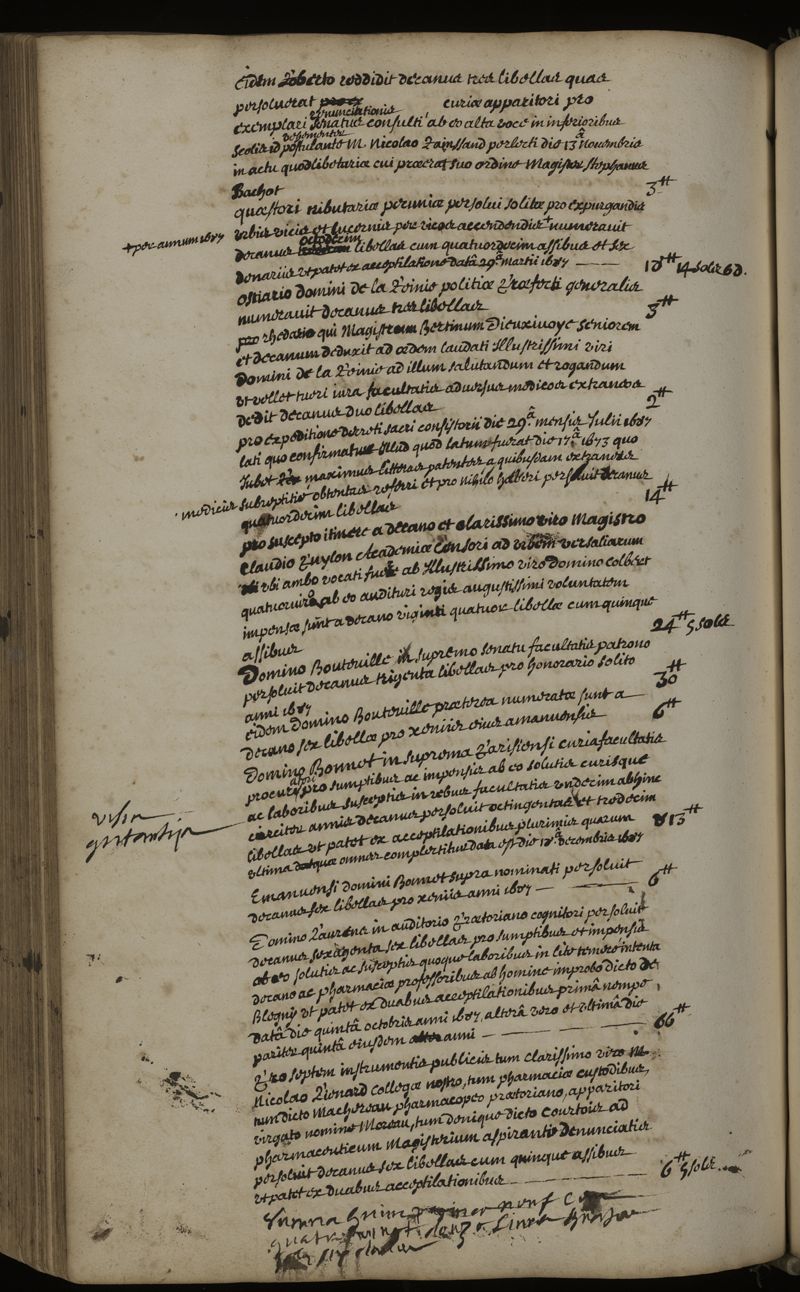 Eidem Roberto reddidit decanus tres libellas quas
persoluerat curiæ apparitori pro
renunciationis
exemplari senatus consulti, ab eo alta voce in inferioribus
vehementer
scolis id postulante M. Nicolao Rainssant perlecti die 13â nouembris
in actu quodlibetario cui præerat suo ordine Magister Stephanus
Bachot
3tt
quæstori tributariæ pecuniæ persolui solitæ pro expurgandis
vrbis vicis et lucernis per vicos accendendis + numerauit
+ per annum 1687
octodecim
decanus libellas cum quatuordecim assibus et sex
denariis vt patet ex acceptilatione datâ 29â martii 1687 18tt 14 sols 6 d.
ostiario Domini de la Reinie politiæ Præfecti generalis
numerauit decanus tres libellas
3tt
pro rhedario qui Magistrum Bertinum Dieuxiuoye seniorem
et decanum deduxit ad ædem laudati Illustrissimi viri
Domini de la Reinie ad illum salutandum et rogandum
vt vellet tueri iura facultatis aduersus medicos extraneos
dedit decanus duo libellas
2tt
pro expeditione decreti sacri consistorii die 29â mensis Iulii 1687
lati quo confirmatur illud quod latum fuerat die 17â 1673 quo
Iubet Rex maximus litteras patentes a quibusdam extraneis
medicis subreptitie obtentas referri et pro nihilo haberi persoluit decanus
quatuordecim libellas
14tt
pro suscepto itinere a decano et clarissimo viro Magistro
Claudio Puylon Academiæ Censori ad vrbem versaliarum
vbi ambo vocati fuere ab Illustrissimo viro Domino colbert
quatuoruiro, ab eo audituri regis augustissimi voluntatem
impensæ sunt a decano viginti quatuor libellæ cum quinque
assibus
24tt 5 sols
Domino Bouteuille in supremo senatu facultatis patrono
persoluit decanus triginta libellas pro honorario solito
anni 1687
30tt
eidem Domino Bouteuille præterea numeratæ sunt a
decano sex libellæ pro xeniis eius amanuensis
6tt
Domino Bonnet in suprema Parisiensi curia facultatis
procuratori pro sumptibus ac impensis ab eo solutis curisque
ac laboribus susceptis in rebus facultatis vndecim abhinc
circiter annis decanus persoluit octingentas et tredecim
libellas vt patet ex acceptilationibus plurimis quarum
ultima quæ omnes complectitur data est die 18â decembris 1687
813tt
Emanuensi domini Bonnet supra nominati persoluit
decanus sex libellas pro xeniis anni 1687
6tt
Domino Laurens in auditorio Prætoriano cognitori persoluit
decanus sexaginta sex libellas pro sumptibus et impensis
ab eo solutis ac susceptis quoque laboribus in lite temere intenta
decano ac pharmaciæ professoribus ab homine improbo dicto de
Blegny vt patet ex duabus acceptilationibus primâ nempe
datâ die quintâ octobris anni 1687, alterâ vero et vltimâ die
pariter quintâ eiusdem anni
66tt
Pro septem instrumentis publicis tum clarissimo viro M.
Nicolao Lienard Collegæ nostro, tum pharmaciæ custodibus,
tum dicto Machereau pharmacopeo prætoriano, apparitori
virgato nomine Moreau, tum denique dicto Courtois ad
pharmaceuticum Magisterium aspirantis denunciatis
persoluit decanus sex libellas cum quinque assibus
vt patet ex duabus acceptilationibus
6tt 5 sols
Summa huius paginæ neuf Cen
quatre vingt